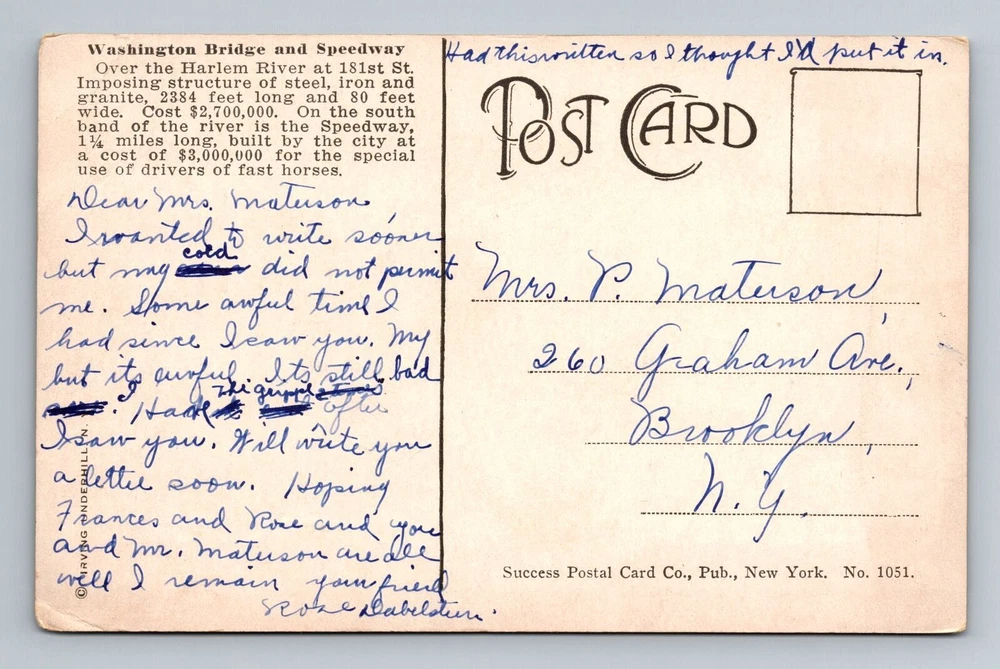 Washington Bridge and Speedway
Over the Harlem River at 181st St.
Imposing structure of steel, iron and
granite, 2384 feet long and 80 feet
wide. Cost $2,700,000. On the south
band of the river is the Speedway,
1¼ miles long, built by the city at
a cost of $3,000,000 for the special
use of drivers of fast horses.
Dear Mrs. Materson,
I wanted to write sooner
but my cold did not permit
me. Some awful time I
had since I saw you. My
but its awful. Its still bad
. I Had the grippe after
I saw you. Will write you
a letter soon. Hoping
Frances and Rose and you
and Mr. Materson are all
well I remain your friend
Rose
© IRVING UNDERHILL, N.
Had this written so I thought I'd put it in.
POST CARD
Mrs. P. Materson,
260 Graham Ave.,
Brooklyn,
N.Y.
Success Postal Card Co., Pub., New York. No. 1051.